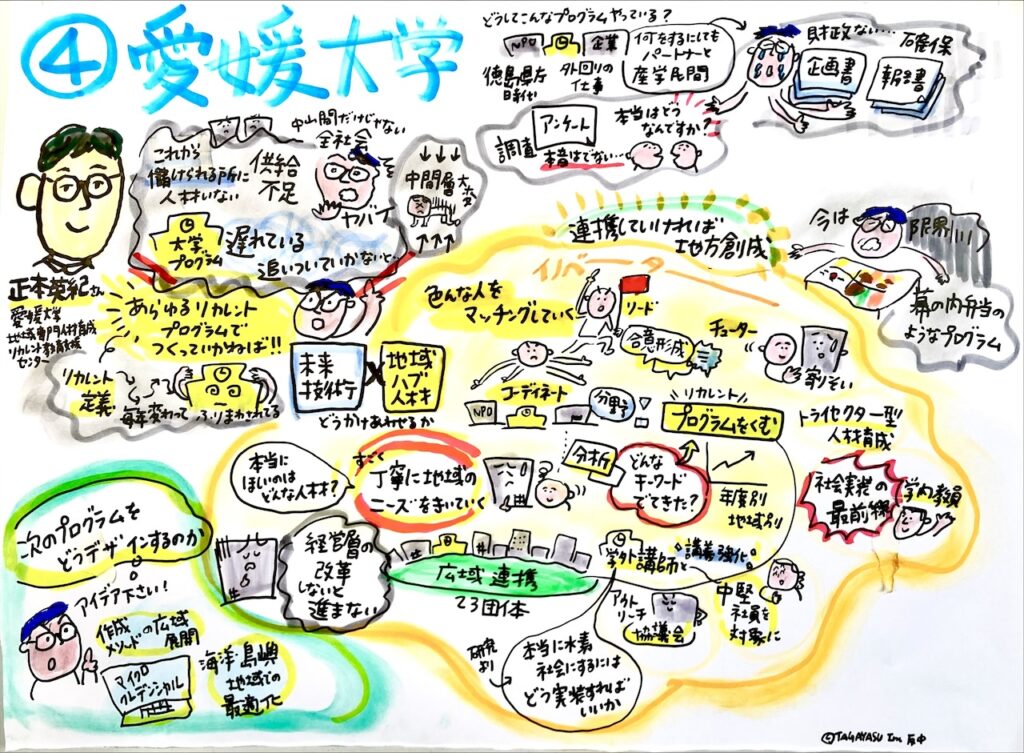 ④愛媛大学
どうしてこんなプログラムやっている?
NPO
企業
徳島県庁
時代
外回りの
仕事
何をするにしても
パートナーと
産学民間
財政ない…確保
企画書
報告書
調査
アンケート
本音はでない…
本当はどう
なんですか?
これから
儲けられる所に
人材いない
供給
不足
中山間だけじゃない
全社会
ヤバイ
大学
プログラム
遅れている
追いついていかないと…
中間層大変
正本英紀さん
愛媛大学
地域専門人材育成
リカレント教育支援
センター
あらゆるリカレント
プログラムで
つくっていかねば!!
リカレント
定義
毎年変わって
ふりまわされてる
未来
技術
×
地域
ハブ
人材
どうかけあわせるか
連携していければ
地方創成
イノベーター
色んな人を
マッチングしていく
リード
合意形成
チューター
寄りそい
今は
限界!!!
幕の内弁当の
ようなプログラム
コーディネート
NPO
分野
リカレント
プログラムをくむ
トライセクター型
人材育成
本当に
ほしいのは
どんな人材?
すごく
丁寧に地域の
ニーズをきいていく
分析
どんな
キーワード
でてきた?
年度別
地域別
社会実装の
最前線
学内教員
経営層の
改革
しないと
進まない
広域連携
23団体
学外講師と
講義強化。
アウト
リーチ
協議会
中堅
社員を
対象に
本当に水素
社会にするには
どう実装すれば
いいか
次のプログラムを
どうデザインするのか
アイデア下さい!
作成
メソッドの広域
展開
マイクロ
クレデンシャル
海洋・島嶼
地域での
最適化
©TAGAYASU Inc.